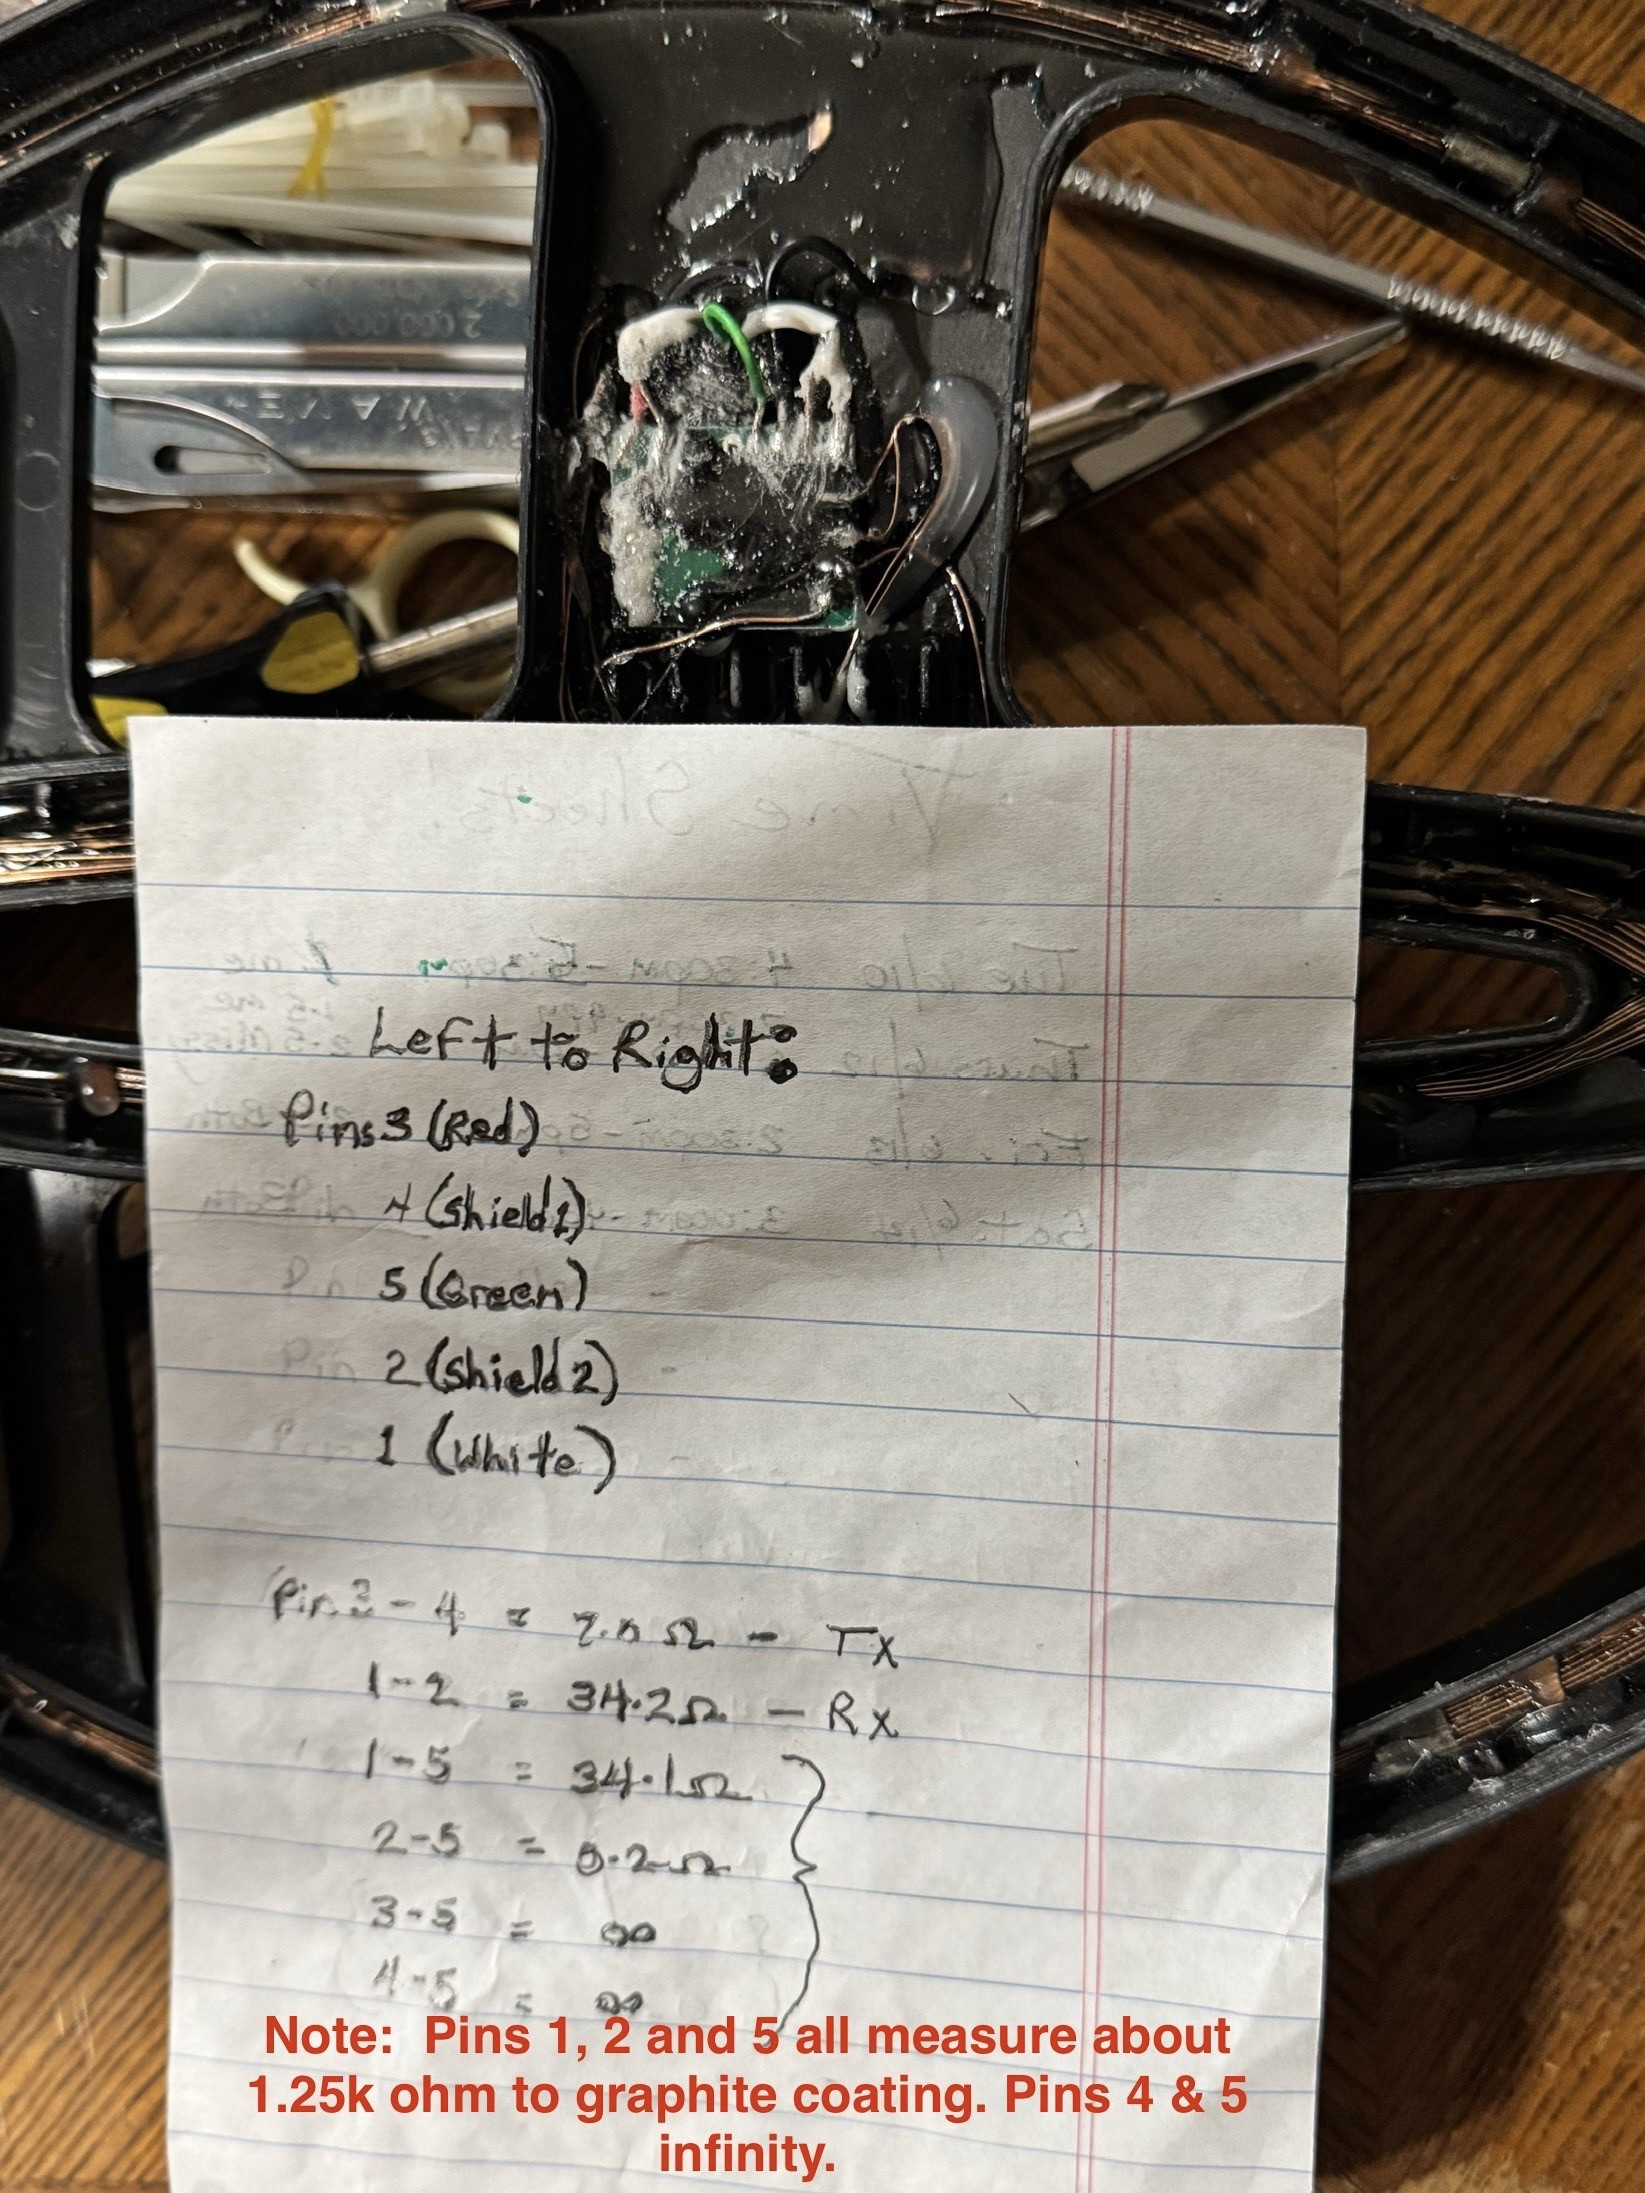 Left to Right:
Pins 3 (Red)
4 (Shield 1)
5 (Green)
2 (Shield 2)
1 (White)
Pin 3 - 4 = Ω - TX
1 - 2 = 34.2Ω - RX
1 - 5 = 34.1Ω
2 - 5 = 0.2Ω
3 - 5 = ∞
4 - 5 = ∞
Note: Pins 1, 2 and 5 all measure about
1.25k ohm to graphite coating. Pins 4 & 5
infinity.